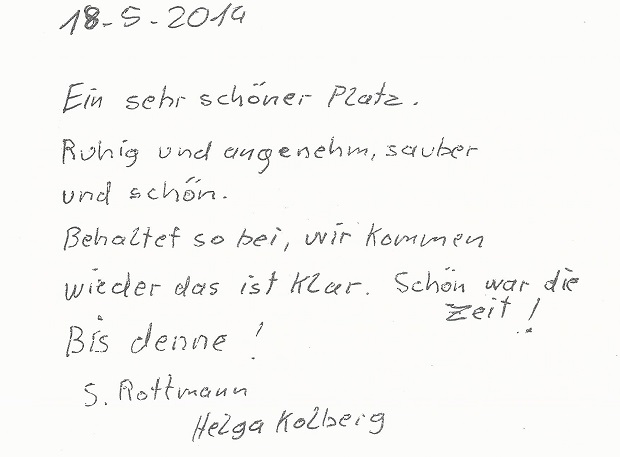 18-5-2014
Ein sehr schöner Platz.
Ruhig und angenehm, sauber
und schön.
Behaltet so bei, wir kommen
wieder das ist klar. Schön war die
Zeit!
Bis denne!
S. Rottmann
Helga Kolberg